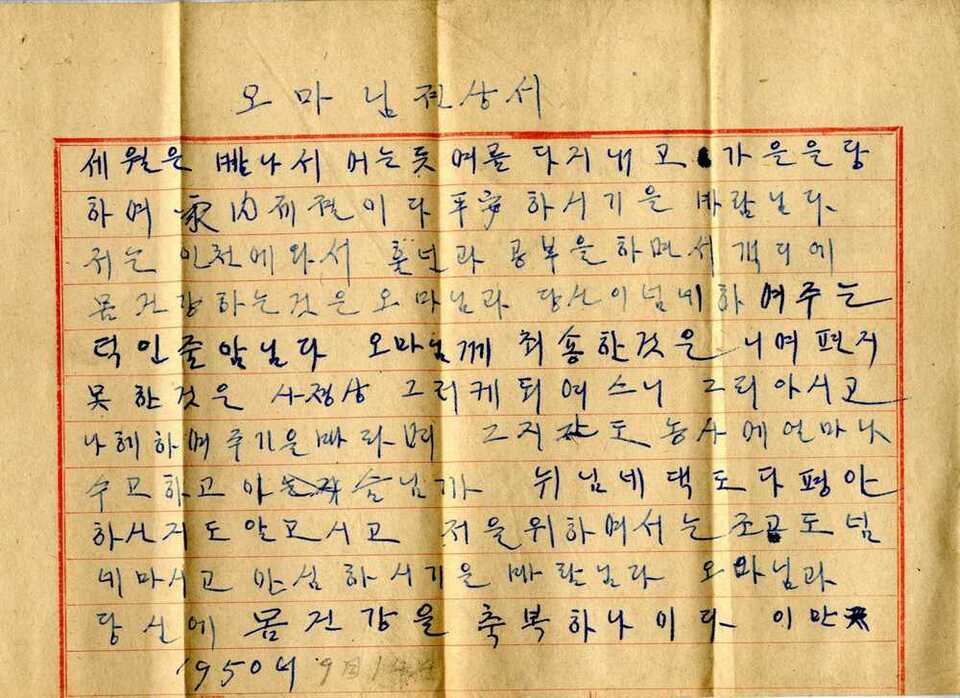 오마님전상서
세월은 빨나서 어는듯 여름 다지내고 가을을당
하여 家內제절이다 平寧 하시기을 바람니다.
저는 인천에와서 훈년과 공부을하면서 객디에
몸건강하는것은 오마님과 당신이넘녜하여주는
덕인줄암님다 오마님께 죄송한것은 니여편지
못한것은 사정상 그러케되여스니 그리아시고
나헤하며주기을바라며 그지 도 농사에얼마나
수고하고 슴님까 뉘님네댁도다평안
하신지도알고시고 저을위하여서는조곰도넘
녜마시고 안심하시기을 바람님다 오마님과
당신에 몸건강을 축복하나이다 이만
1950녀 9月1